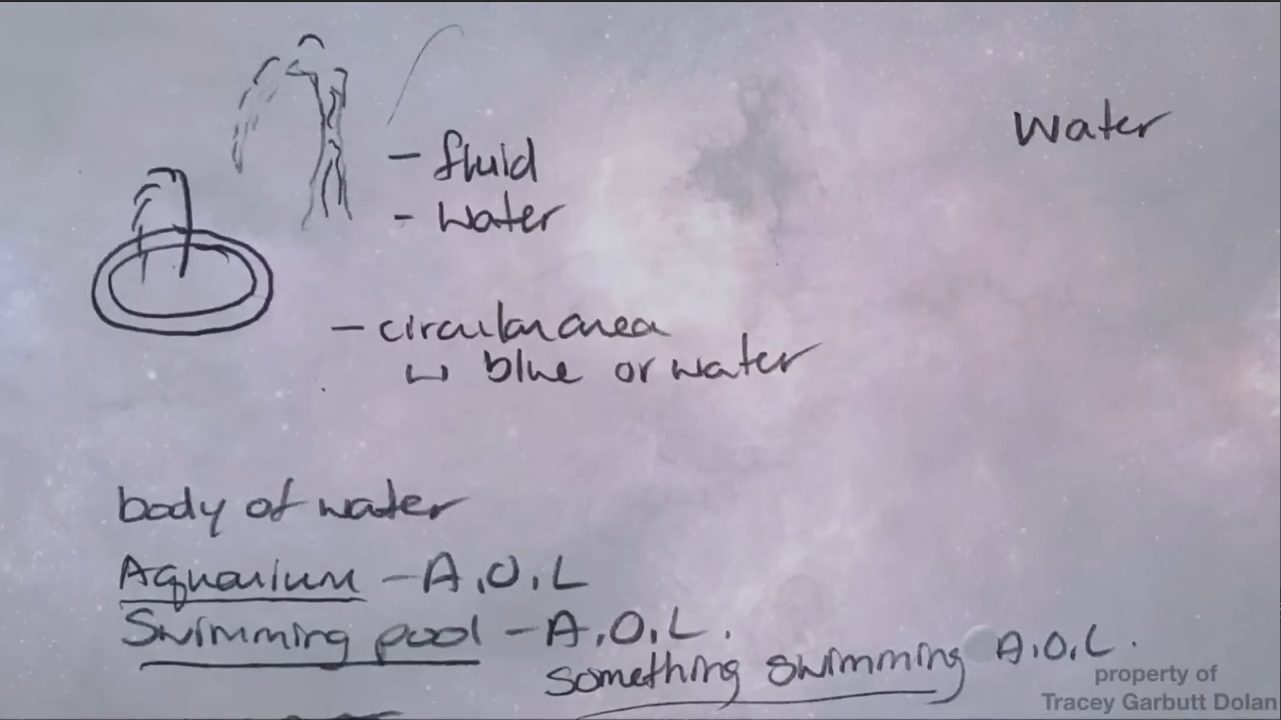 Water
- fluid
- water
- circular area
↳ blue or water
body of water
Aquarium - A.O.L
Swimming pool - A.O.L.
something swimming A.O.L.
property of
Tracey Garbutt Dolan